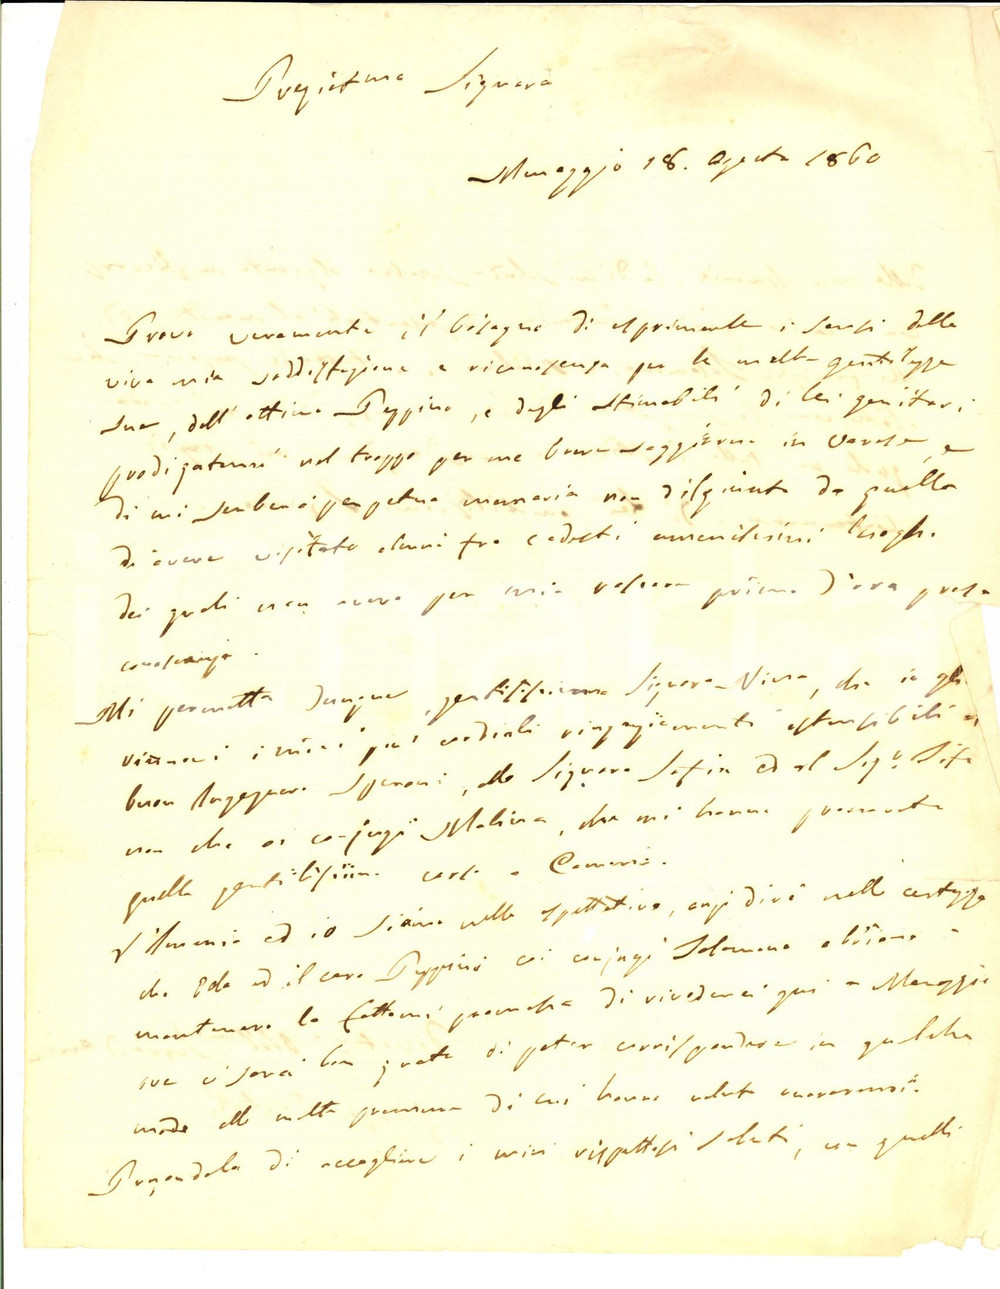 Pregiatma Signora
Menaggio 18. Agosto 1860
Provo veramente il bisogno di esprimerle i sensi della
viva mia soddisfazione e riconoscenza per le molte gentilezze
sue, dell'ottimo Peppino, e degli stimabili di lei genitori
prodigatemi nel troppo per me breve soggiorno in Varese, e
di cui serberò perpetua memoria non disgiunta da quella
di avere visitato alcuni fra codesti amenissimi luoghi
dei quali non aveva per mia prima d'ora presa
conoscenza.
Mi permetta dunque, gentilissima Signora Nina, che io le
rinnovi i miei più cordiali ringraziamenti estensibili al
buon Ingegnere Speroni, alla Signora Sofia ed al Sigr.
non che ai conjugi Molina, che mi hanno procurato
quella gentilissima corsa a
L'Amania ed io siamo nella aspettativa, anzi dirò nella certezza
che Ida ed il caro Peppino coi conjugi Salomone abbiano a
mantenere la fattami promessa di rivederci qui a Menaggio
ove ci sarà ben grato di poter corrispondere in qualche
modo alle molte premure di cui hanno voluto onorarmi.
Pregandola di accogliere i miei rispettosi saluti, con quelli